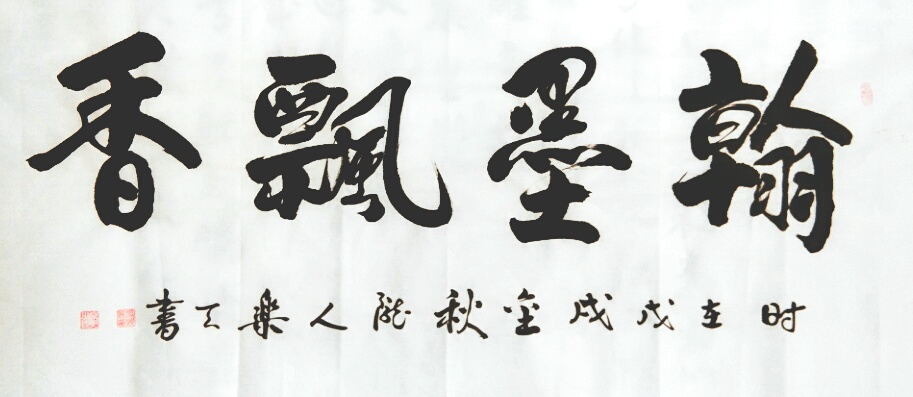 翰墨飄香
时在戊戌金秋陇人乐天書